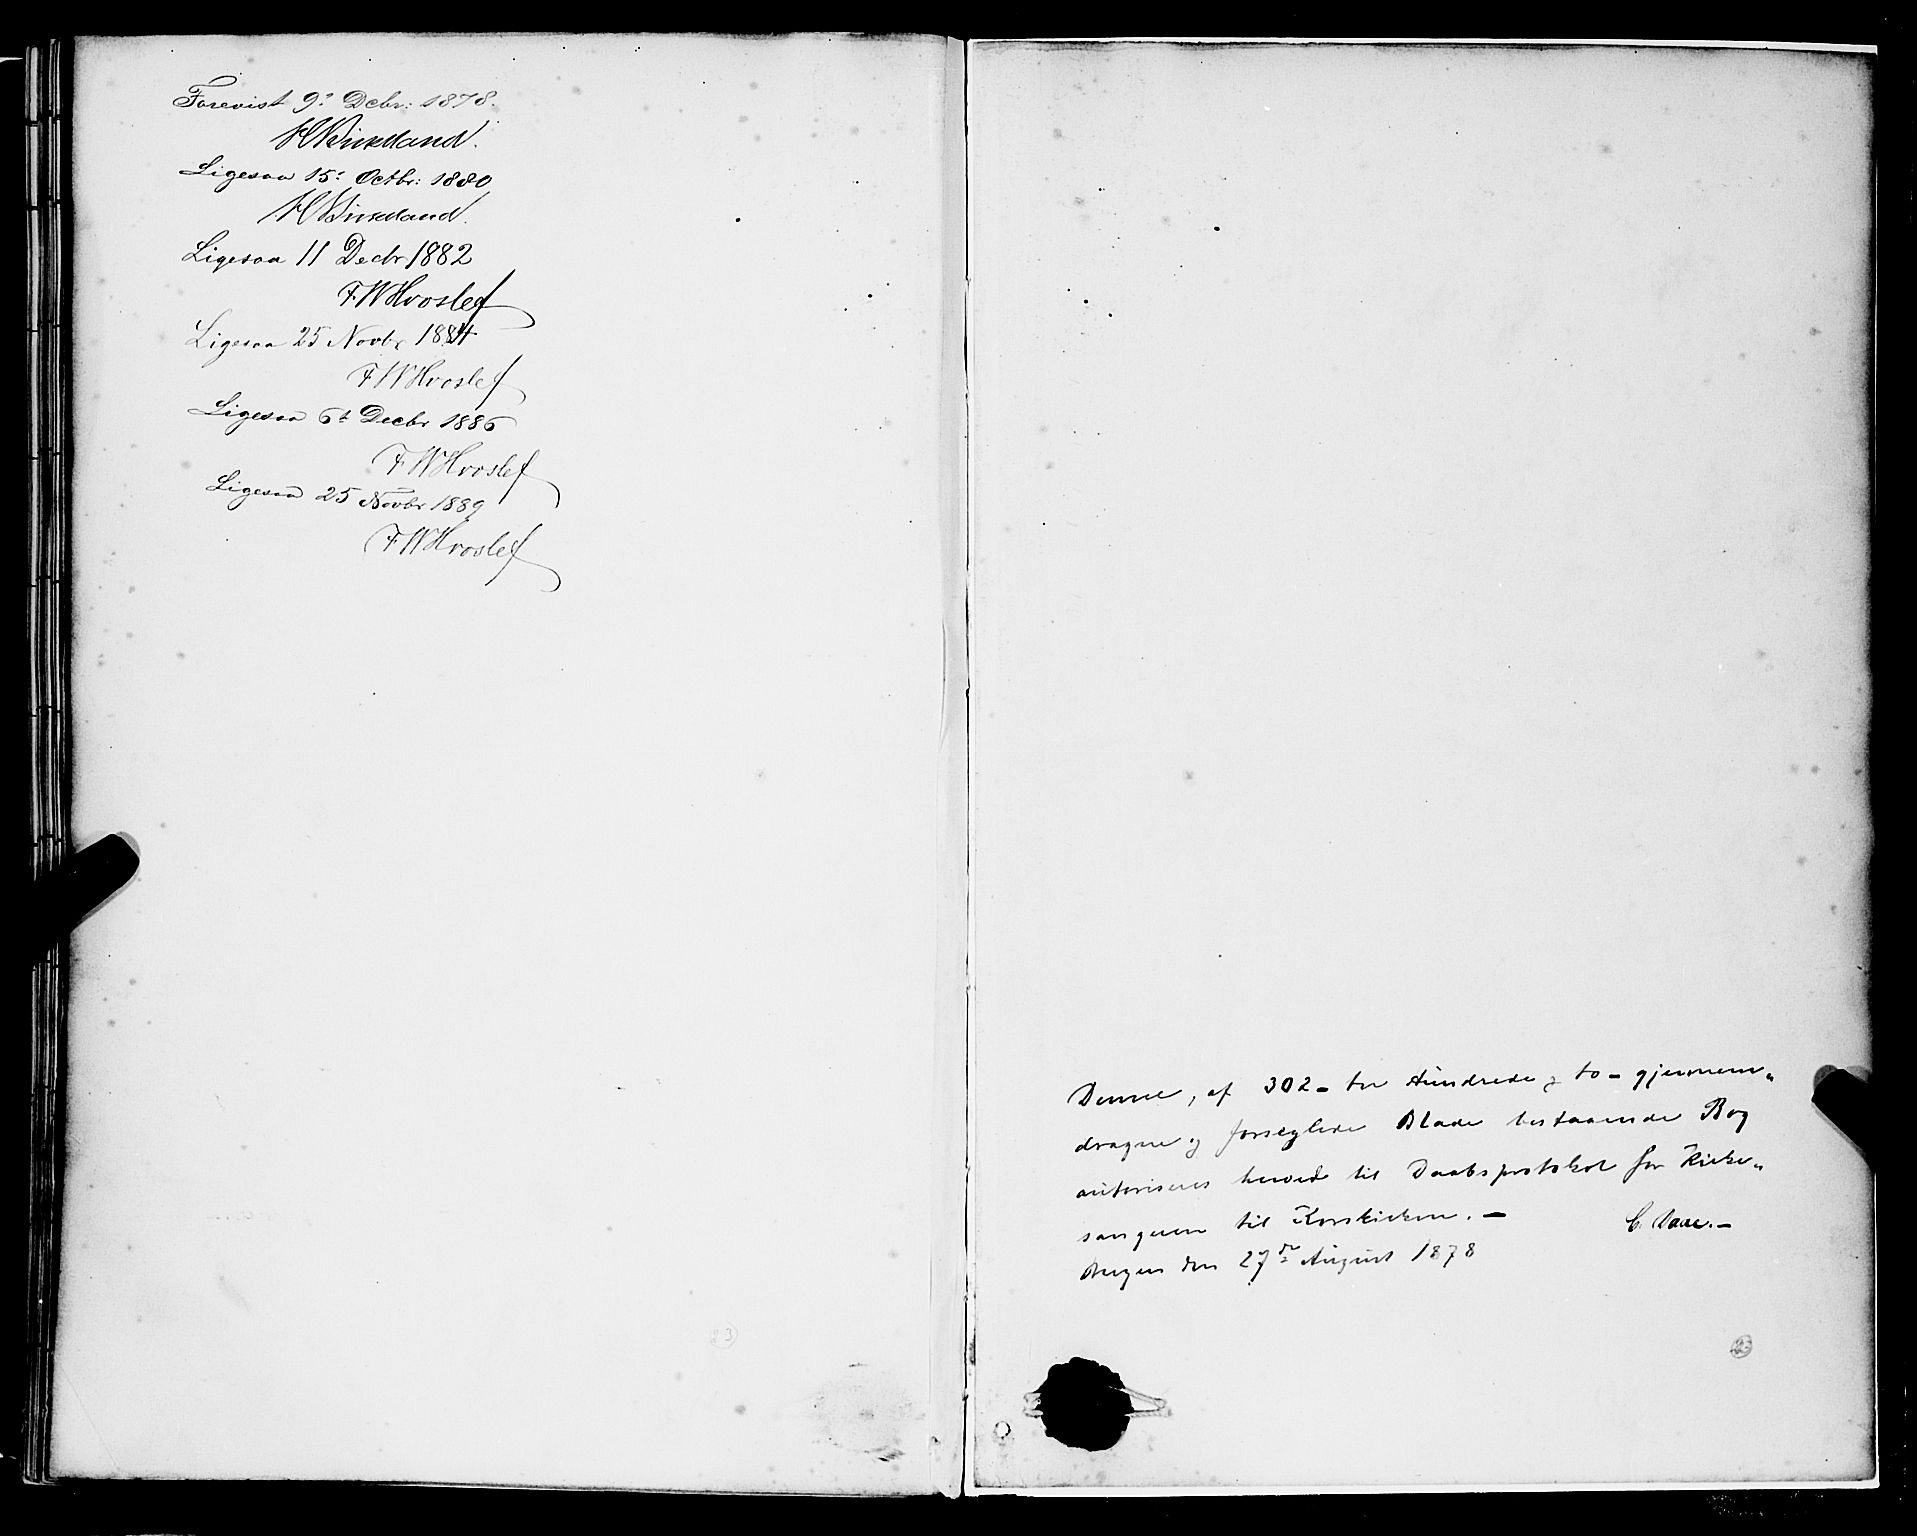 Forevist 9: Debr: 1878.
HBirkeland.
Ligesaa 15: Octbr: 1880
HBirkeland.
Ligesaa 11 Decbr 1882
FWHvoslef
Ligesaa 25 Novbr 1884
FWHvoslef
Ligesaa 6t Decbr 1886
FWHvoslef
Ligesaa 25 Novbr 1889
FWHvoslef
Denne, af 302 - tre Hundrede og to - gjennem„
dragne og forseglede Blade bestaaende Bog
autoriseres herved til Daabsprotokol for Kirke„
sangeren til Korskirken. —
C. Daae. —
Bergen den 27de August 1878
23